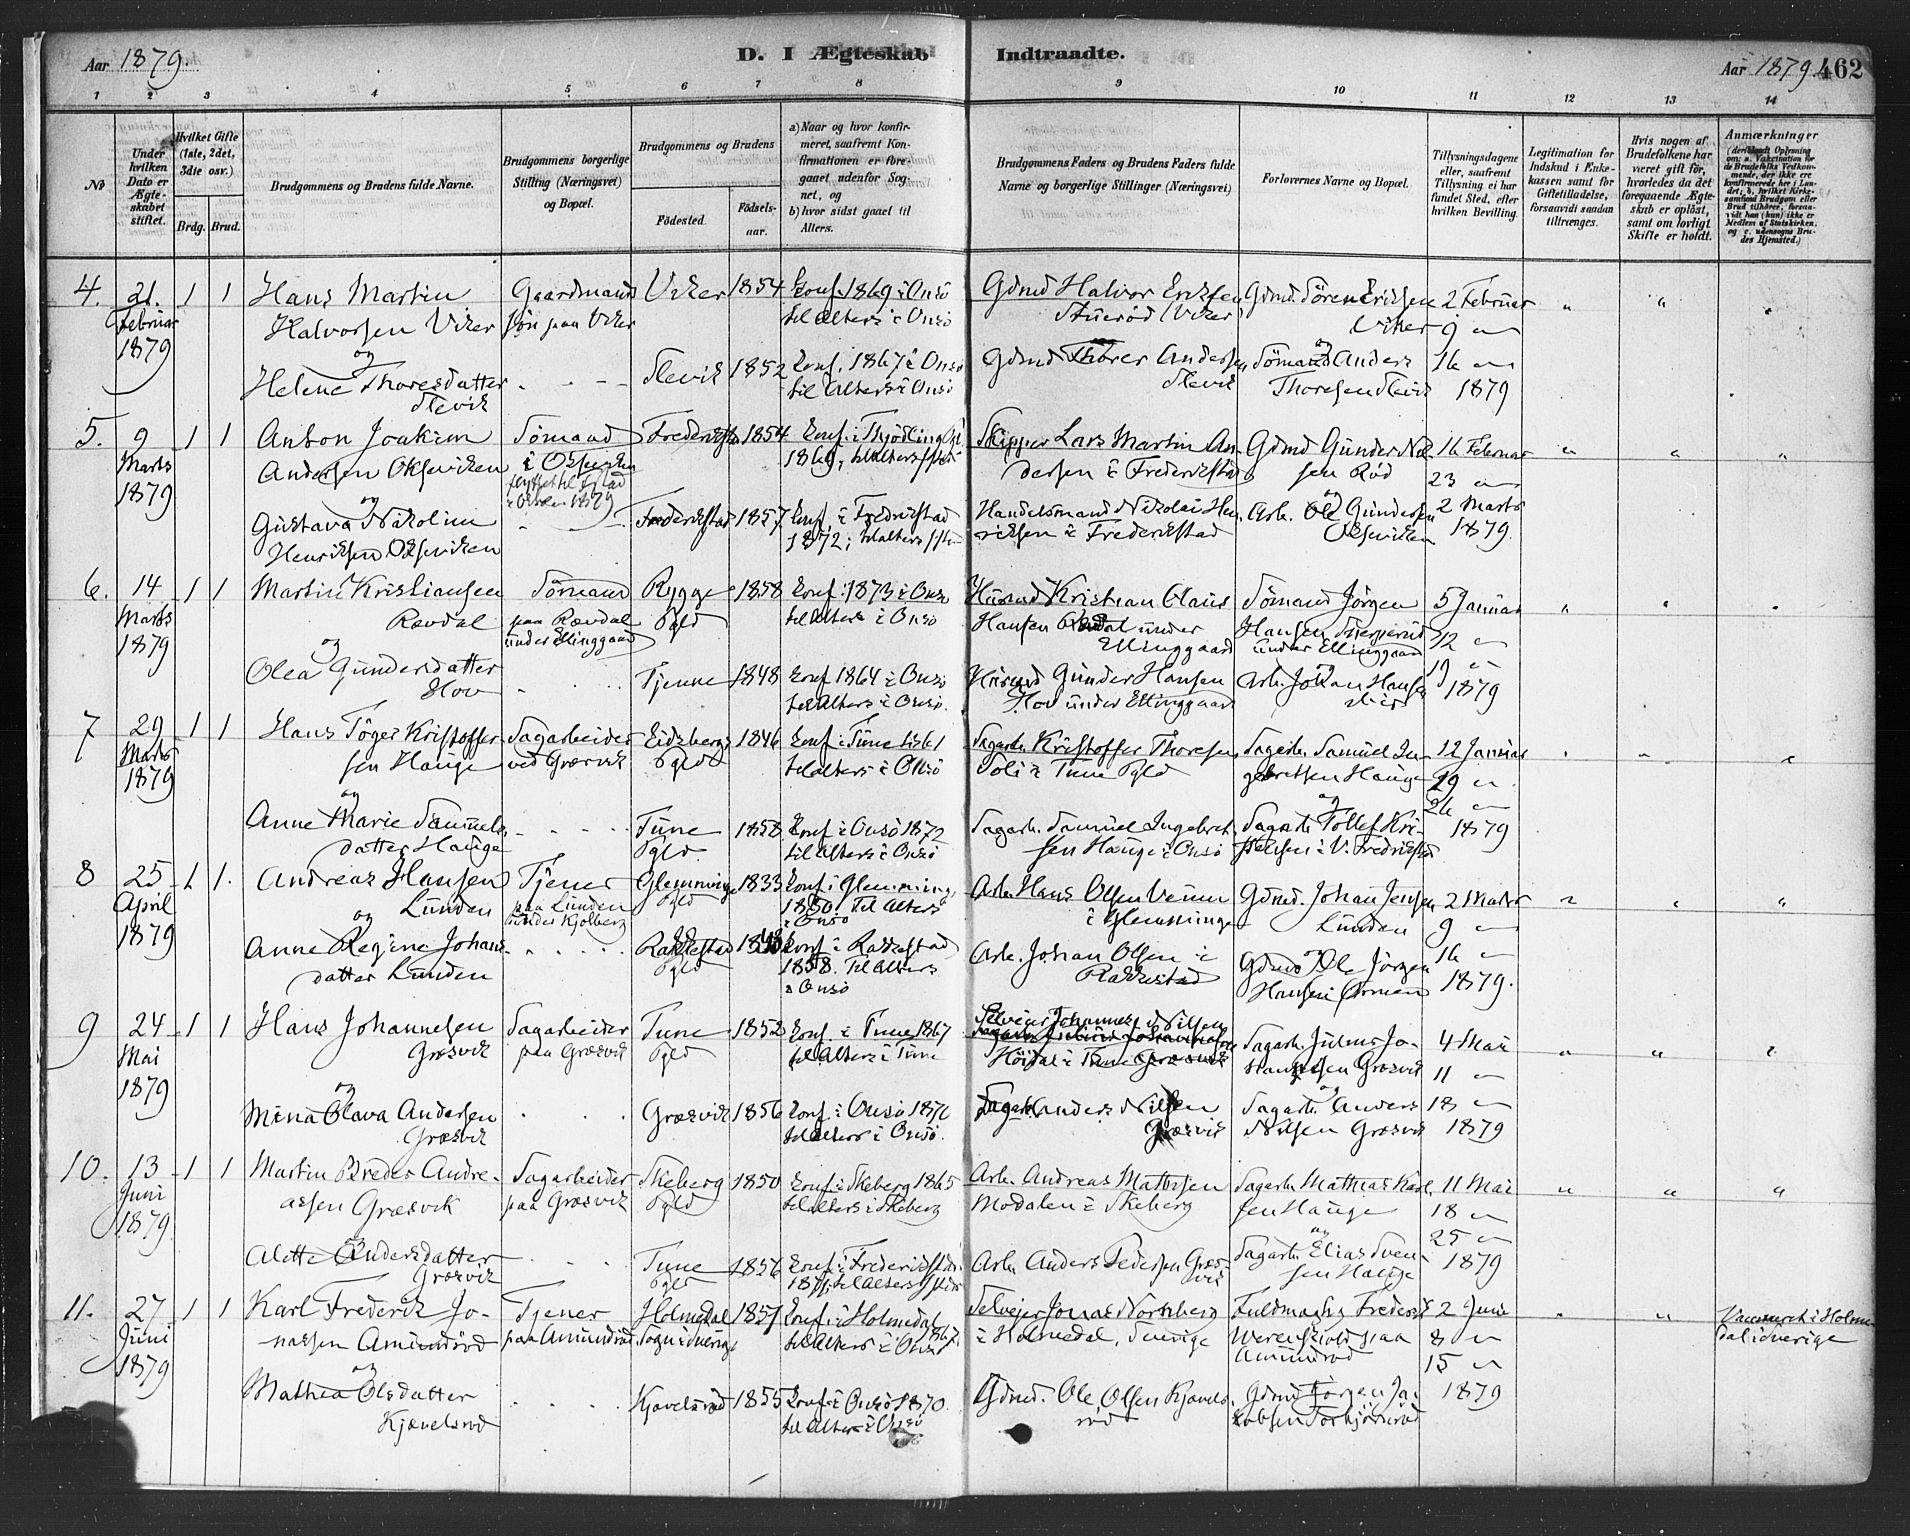 Aar 1879.
D. I Ægteskab Indtraadte.
Aar 1879 462
1 2 3 4 5 6 7 8 9 10 11 12 13 14
No
Under hvilken Dato er Ægteskabet stiftet.
Hvilket Gifte (1ste, 2det, 3die osv.)
Brdg. Brud.
Brudgommens og Brudens fulde Navne.
Brudgommens borgerlige Stilling (Næringsvei) og Bopæl.
Brudgommens og Brudens
Fødested.
Fødselsaar.
a) Naar og hvor konfirmeret, saafremt Konfirmationen er foregaaet udenfor Sognet, og
b) hvor sidst gaaet til Alters.
Brudgommens Faders og Brudens Faders fulde Navne og borgerlige Stillinger (Næringsvei)
Forlovernes Navne og Bopæl.
Tillysningsdagene eller, saafremt Tillysning ei har fundet Sted, efter hvilken Bevilling.
Legitimation for Indskud i Enkekassen samt for Giftetilladelse, forsaavidt saadan tiltrænges.
Hvis nogen af Brudefolkene har været gift før, hvorledes da det foregaaende Ægteskab er opløst, samt om lovligt Skifte er holdt.
Anmærkninger
4. 21. Februar 1879 1 1
Hans Martin
Halvorsen Viker
og
Helene Thoresdatter
Slevik
Gaardmands
Søn paa Viker
Viker 1854
Konf. 1869 i Onsø
til Alters i Onsø
Slevik 1852
Konf. 1867 i Onsø
til Alters i Onsø
Gdmd Halvor Eriksen
Viker
Gdmd Thorer Andersen
Slevik
Gdmd. Sören Eriksen
Viker
og
Sömand Anders
Thoresen Slevik
2 Februar
9 "
16 "
1879
5. 9 Marts 1879 1 1
Anton Joakim
Andersen Oksviken
og
Gustava Nikoline
Henriksen Oksviken
Sömand
i Oksviken
Frederikstad 1854
1869, til Alters
Frederikstad 1857
Konf. i Fredrikstad
1872; til Alters
Skipper Lars Martin An-
dersen i Frederikstad
Handelsmand Nikolai Hen-
riksen i Frederikstad
Gdmd Gunder Nil-
sen Rød
og
Arb. Ole Gundersen
Oksviken
16 Februar
23 "
2 Marts
1879.
6. 14 Marts 1879 1 1
Martin Kristiansen
Rævdal
og
Olea Gundersdatter
Hov
Sömand
paa Rævdal
under Ellinggaard
Rygge
Pgld 1858
Konf. 1873 i Onsø
til Alters i Onsø
Tjenne 1848
Konf 1864 i Onsø
til Alters i Onsø.
Husmd Kristian Olaus
Hansen Rævdal under
Ellinggaard
Husmd Gunder Hansen
Hov under Ellinggaard
Sömand Jørgen
Hansen
under Ellinggaard
og
Arb. Johan Hansen
5 Januar
12 "
19 "
1879
7 29 Marts 1879 1 1
Hans Töger Kristoffer-
sen Hauge
og
Anne Marie Samuels-
datter Hauge
Sagarbeider
ved Græsvik
Eidsberg
Pgld 1846
Konf i Tune 1861
til Alters i Onsø
Tune
Pgld. 1858
Konf i Onsø 1872
til Alters i Onsø
Sagarb. Kristoffer Thoresen
Soli i Tune Pgld
Sagarb. Samuel Ingebret-
sen Hauge i Onsø
Sagarb. Samuel In-
gebretsen Hauge
og
Sagarb. Tollef Kri-
stensen i V. Fredrikstad
12 Januar
19 "
26 "
1879
8 25 April 1879 1 1.
Andreas Hansen
Lunden
og
Anne Regine Johans-
datter Lunden
Tjener
paa Lunden
under Kjølberg
Glemminge
Pgld 1833
Konf i Glemminge
1850. Til Alters
i Onsø
Rakkestad
Pgld
Konf i Rakkestad
1858. Til Alters
i Onsø
Arb. Hans Olsen Veum
i Glemminge
Arb. Johan Olsen i
Rakkestad
Gdmd. Johan Jensen
Lunden
og
Gdmd Ole Jörgen
Hansen Ormen
2 Marts
9 "
16 "
1879.
9 24 Mai 1879 1 1
Hans Johannesen
Græsvik
og
Mina Olava Andersen
Græsvik
Sagarbeider
paa Græsvik
Tune
Pgld 1852
Konf. i Tune 1867
til Alters i Tune
Græsvik 1856
Konf. i Onsø 1870
til Alters i Onsø.
Selveier Johannes Nilsen
Höidal i Tune
Sagarb. Anders Nilsen
Græsvik
Sagarb. Julius Jo-
hansen Græsvik
og
Sagarb. Anders
Nilsen Græsvik
4 Mai
11 "
18 "
1879
10. 13 Juni 1879 1 1
Martin Peder Andre-
assen Græsvik
og
Alette Andersdatter
Græsvik
Sagarbeider
paa Græsvik
Skeberg
Pgld 1850
Konf i Skeberg 1865
til Alters i Skeberg
Tune
Pgld 1856
Konf. i Frederikstad
1871; til Alters
Arb. Andreas Mathisen
Modalen i Skeberg
Arb. Anders Pedersen Græs-
vik
Sagarb. Mathias Karl-
sen Hauge
og
Sagarb. Elias Sven-
sen Hauge
11 Mai
18 "
25 "
1879
11. 27 Juni 1879 1 1
Karl Frederik Jo-
nassen Amundrød
og
Mathea Olsdatter
Kjævelsrød
Tjener
paa Amundrød
Holmedal
Sogn i Sverige 1851
Konf. i Holmedal 1867.
til Alters i Onsø
Kjævelsrød 1855
Konf. i Onsø 1870.
til Alters i Onsø
Selveier Jonas
i Holmedal, Sverige
Gdmd. Ole Olsen Kjævels-
rød
Fuldmægtig Frederik
Werenskiold paa
Amundrød
Gdmd Jörgen Ja-
kobsen Torkjölsrød
2 Juni
8 "
15 "
1879
Vaccineret i Holme-
dal i Sverige